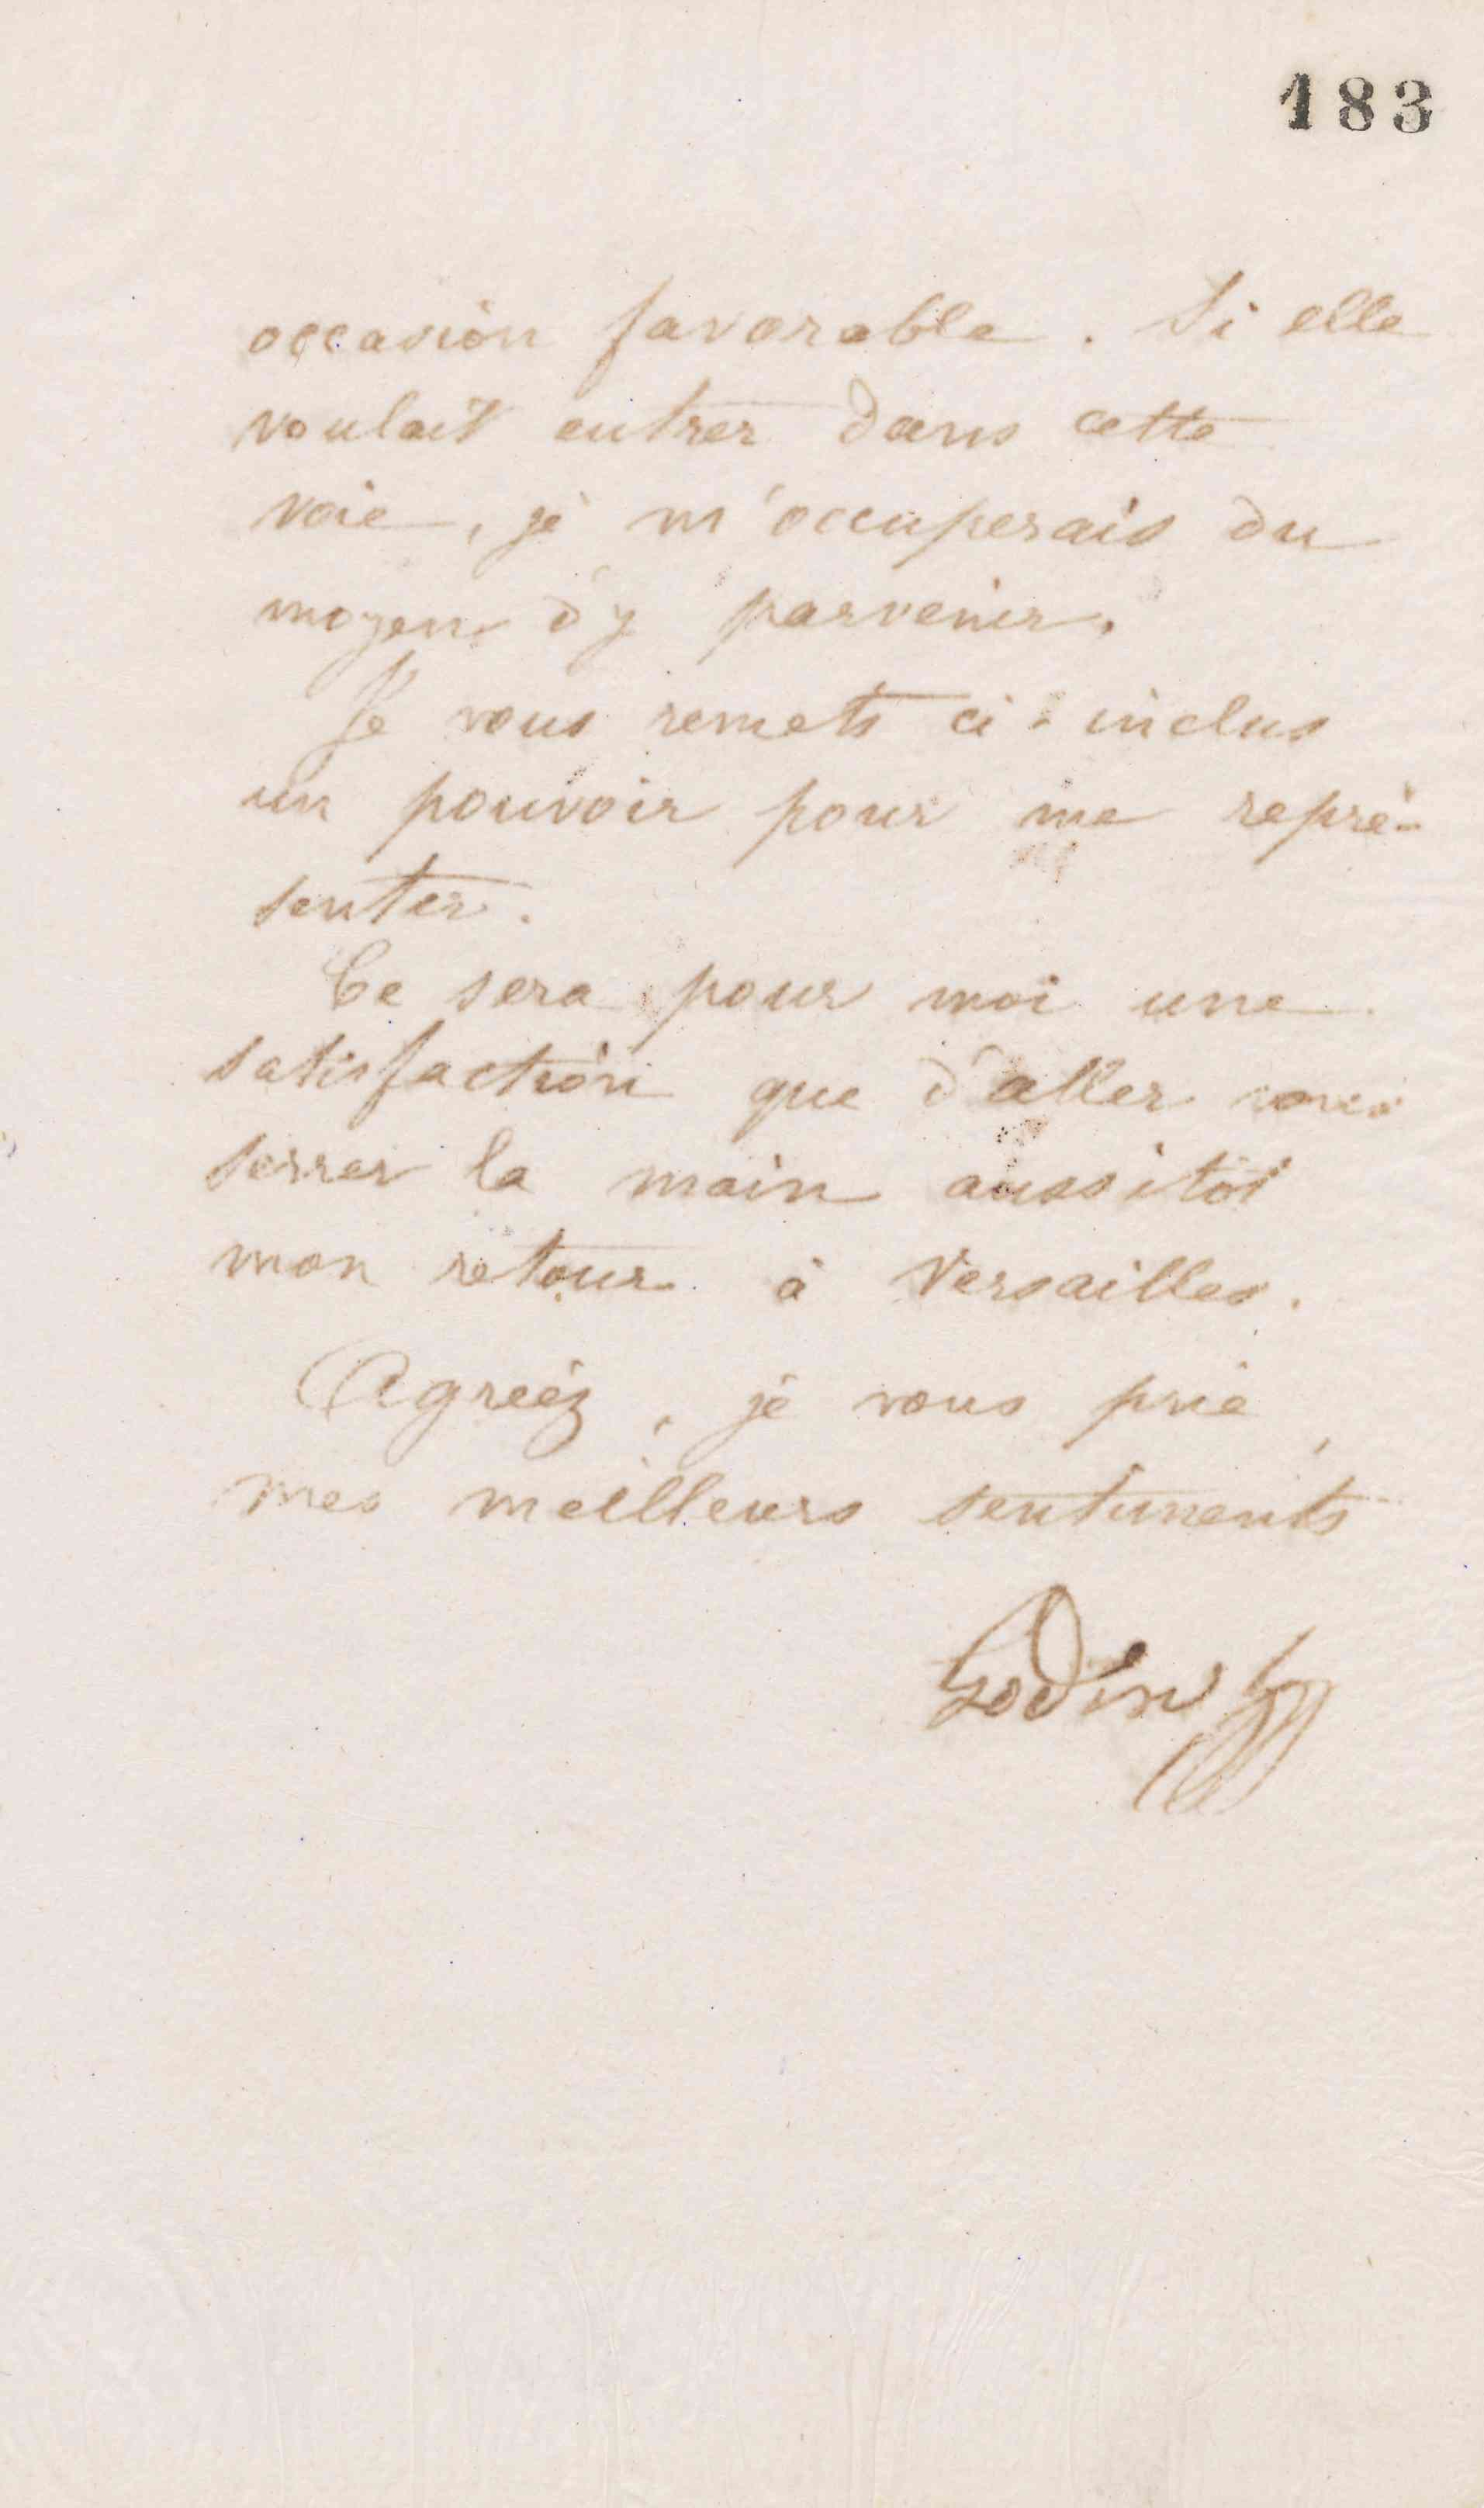 183
occasion favorable. Si elle
voulait entrer dans cette
voie, je m'occuperais du
moyen d'y parvenir.
Je vous remets ci-inclus
un pouvoir pour me repré-
senter.
Ce sera pour moi une
satisfaction que d'aller vous
serrer la main aussitôt
mon retour à Versailles.
Agréez, je vous prie,
mes meilleurs sentiments
Godin